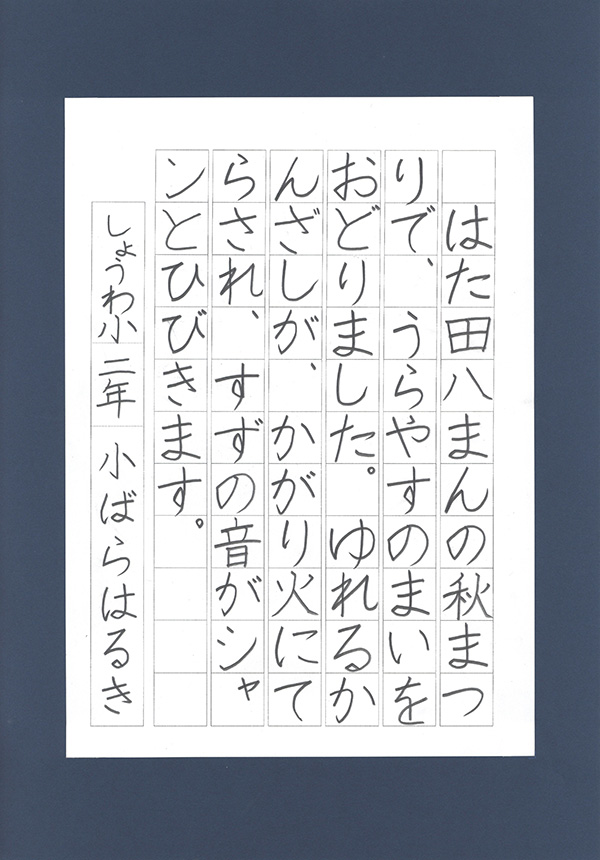 はた田八まんの秋まつ
りで、うらやすのまいを
おどりました。ゆれるか
んざしが、かがり火にて
らされ、すずの音がシャ
ンとひびきます。
しょうわ小二年 小ばらはるき